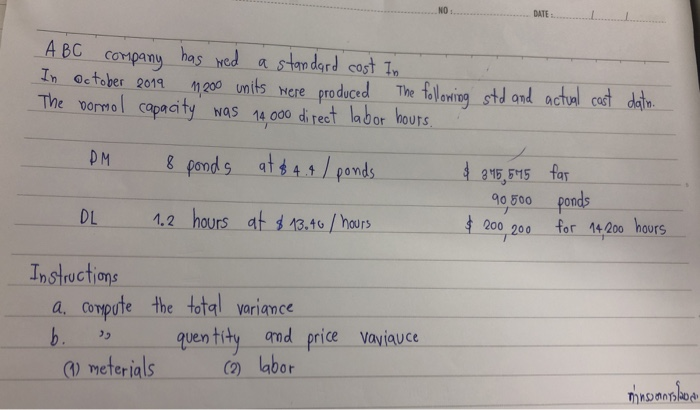 NO. DATE: / /
ABC company has wed a standard cost In
In october 2019 11,200 units were produced The following std and actual cost datn.
The normol capacity was 14,000 direct labor hours.
DM 8 ponds at $ 4.4 / ponds $ 375,575 for
90,500 ponds
DL 1.2 hours at $ 13.40 / hours $ 200,200 for 14,200 hours
Instructions
a. compute the total variance
b. " quentity and price vaviauce
(1) meterials (2) labor